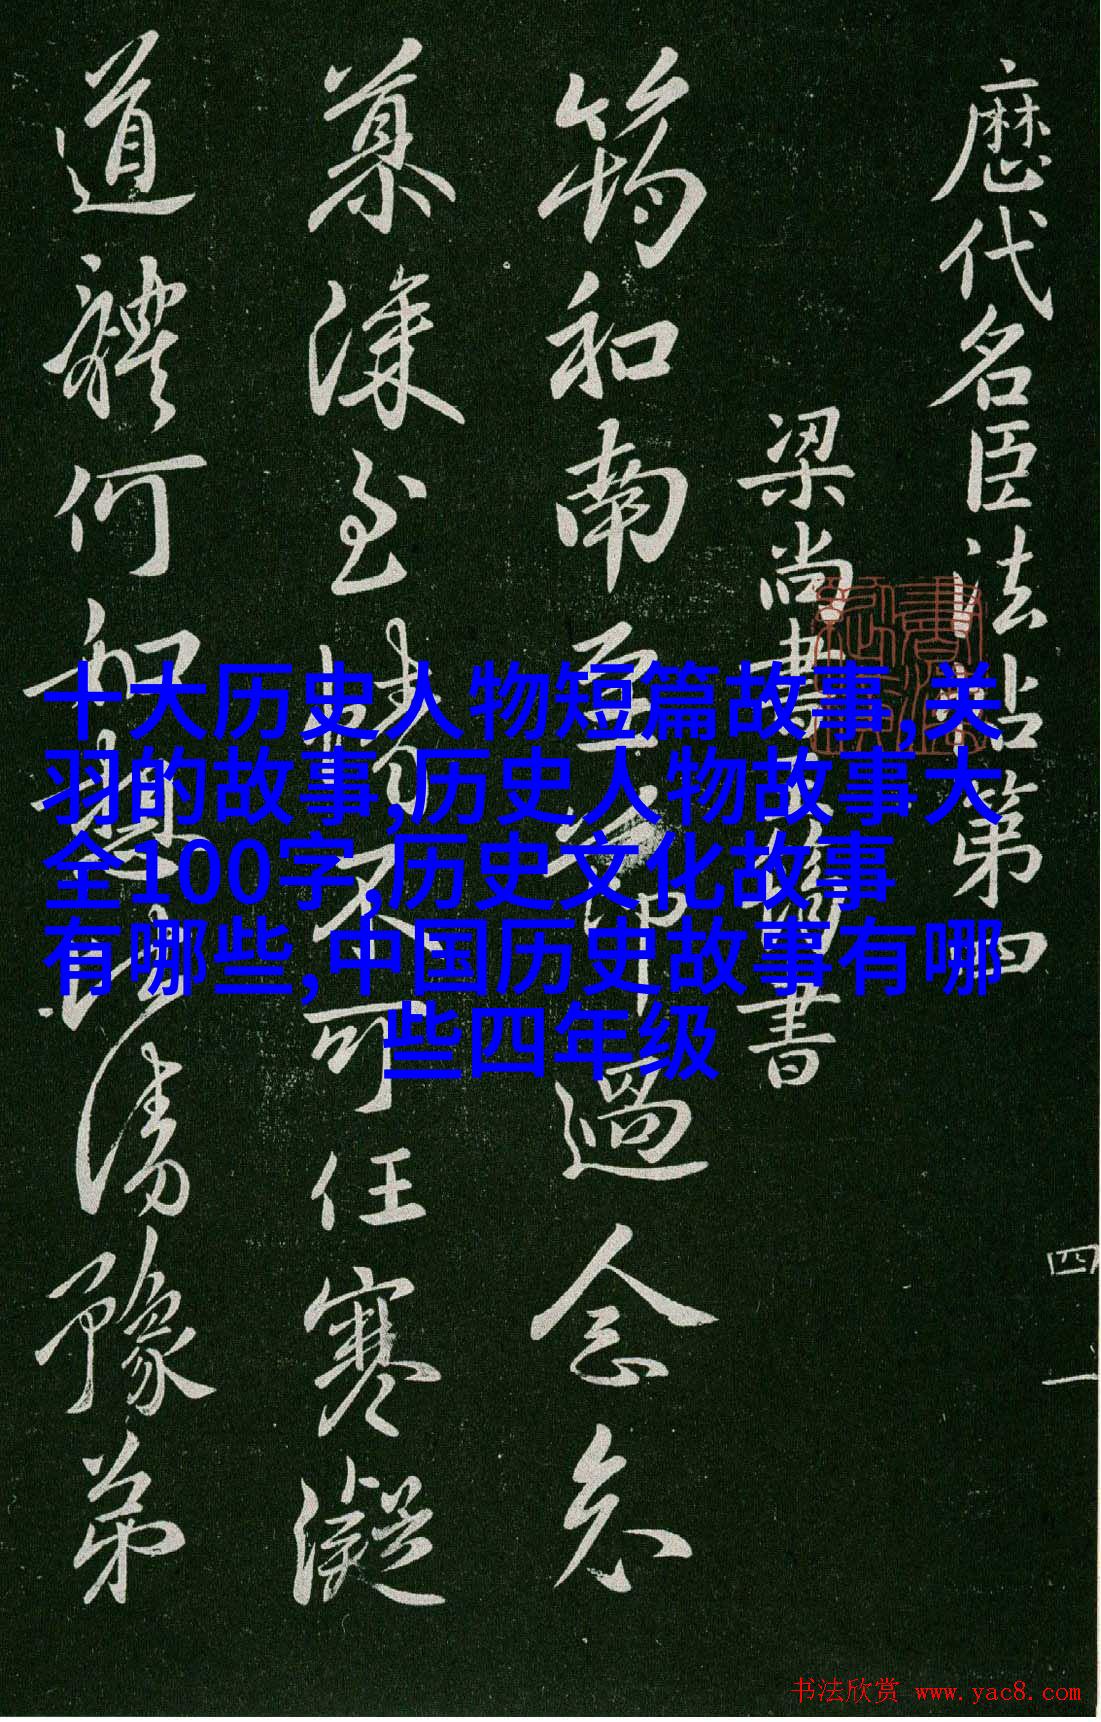 歷代名臣法帖第四
梁尚書王筠書
筠和南至節過念念
道體何如想比清豫弟
十大历史人物短篇故事,关
羽的故事,历史人物故事大
全100字,历史文化故事
有哪些,中国历史故事有哪
些四年级
四 一
书法欣赏 www.yac8.com